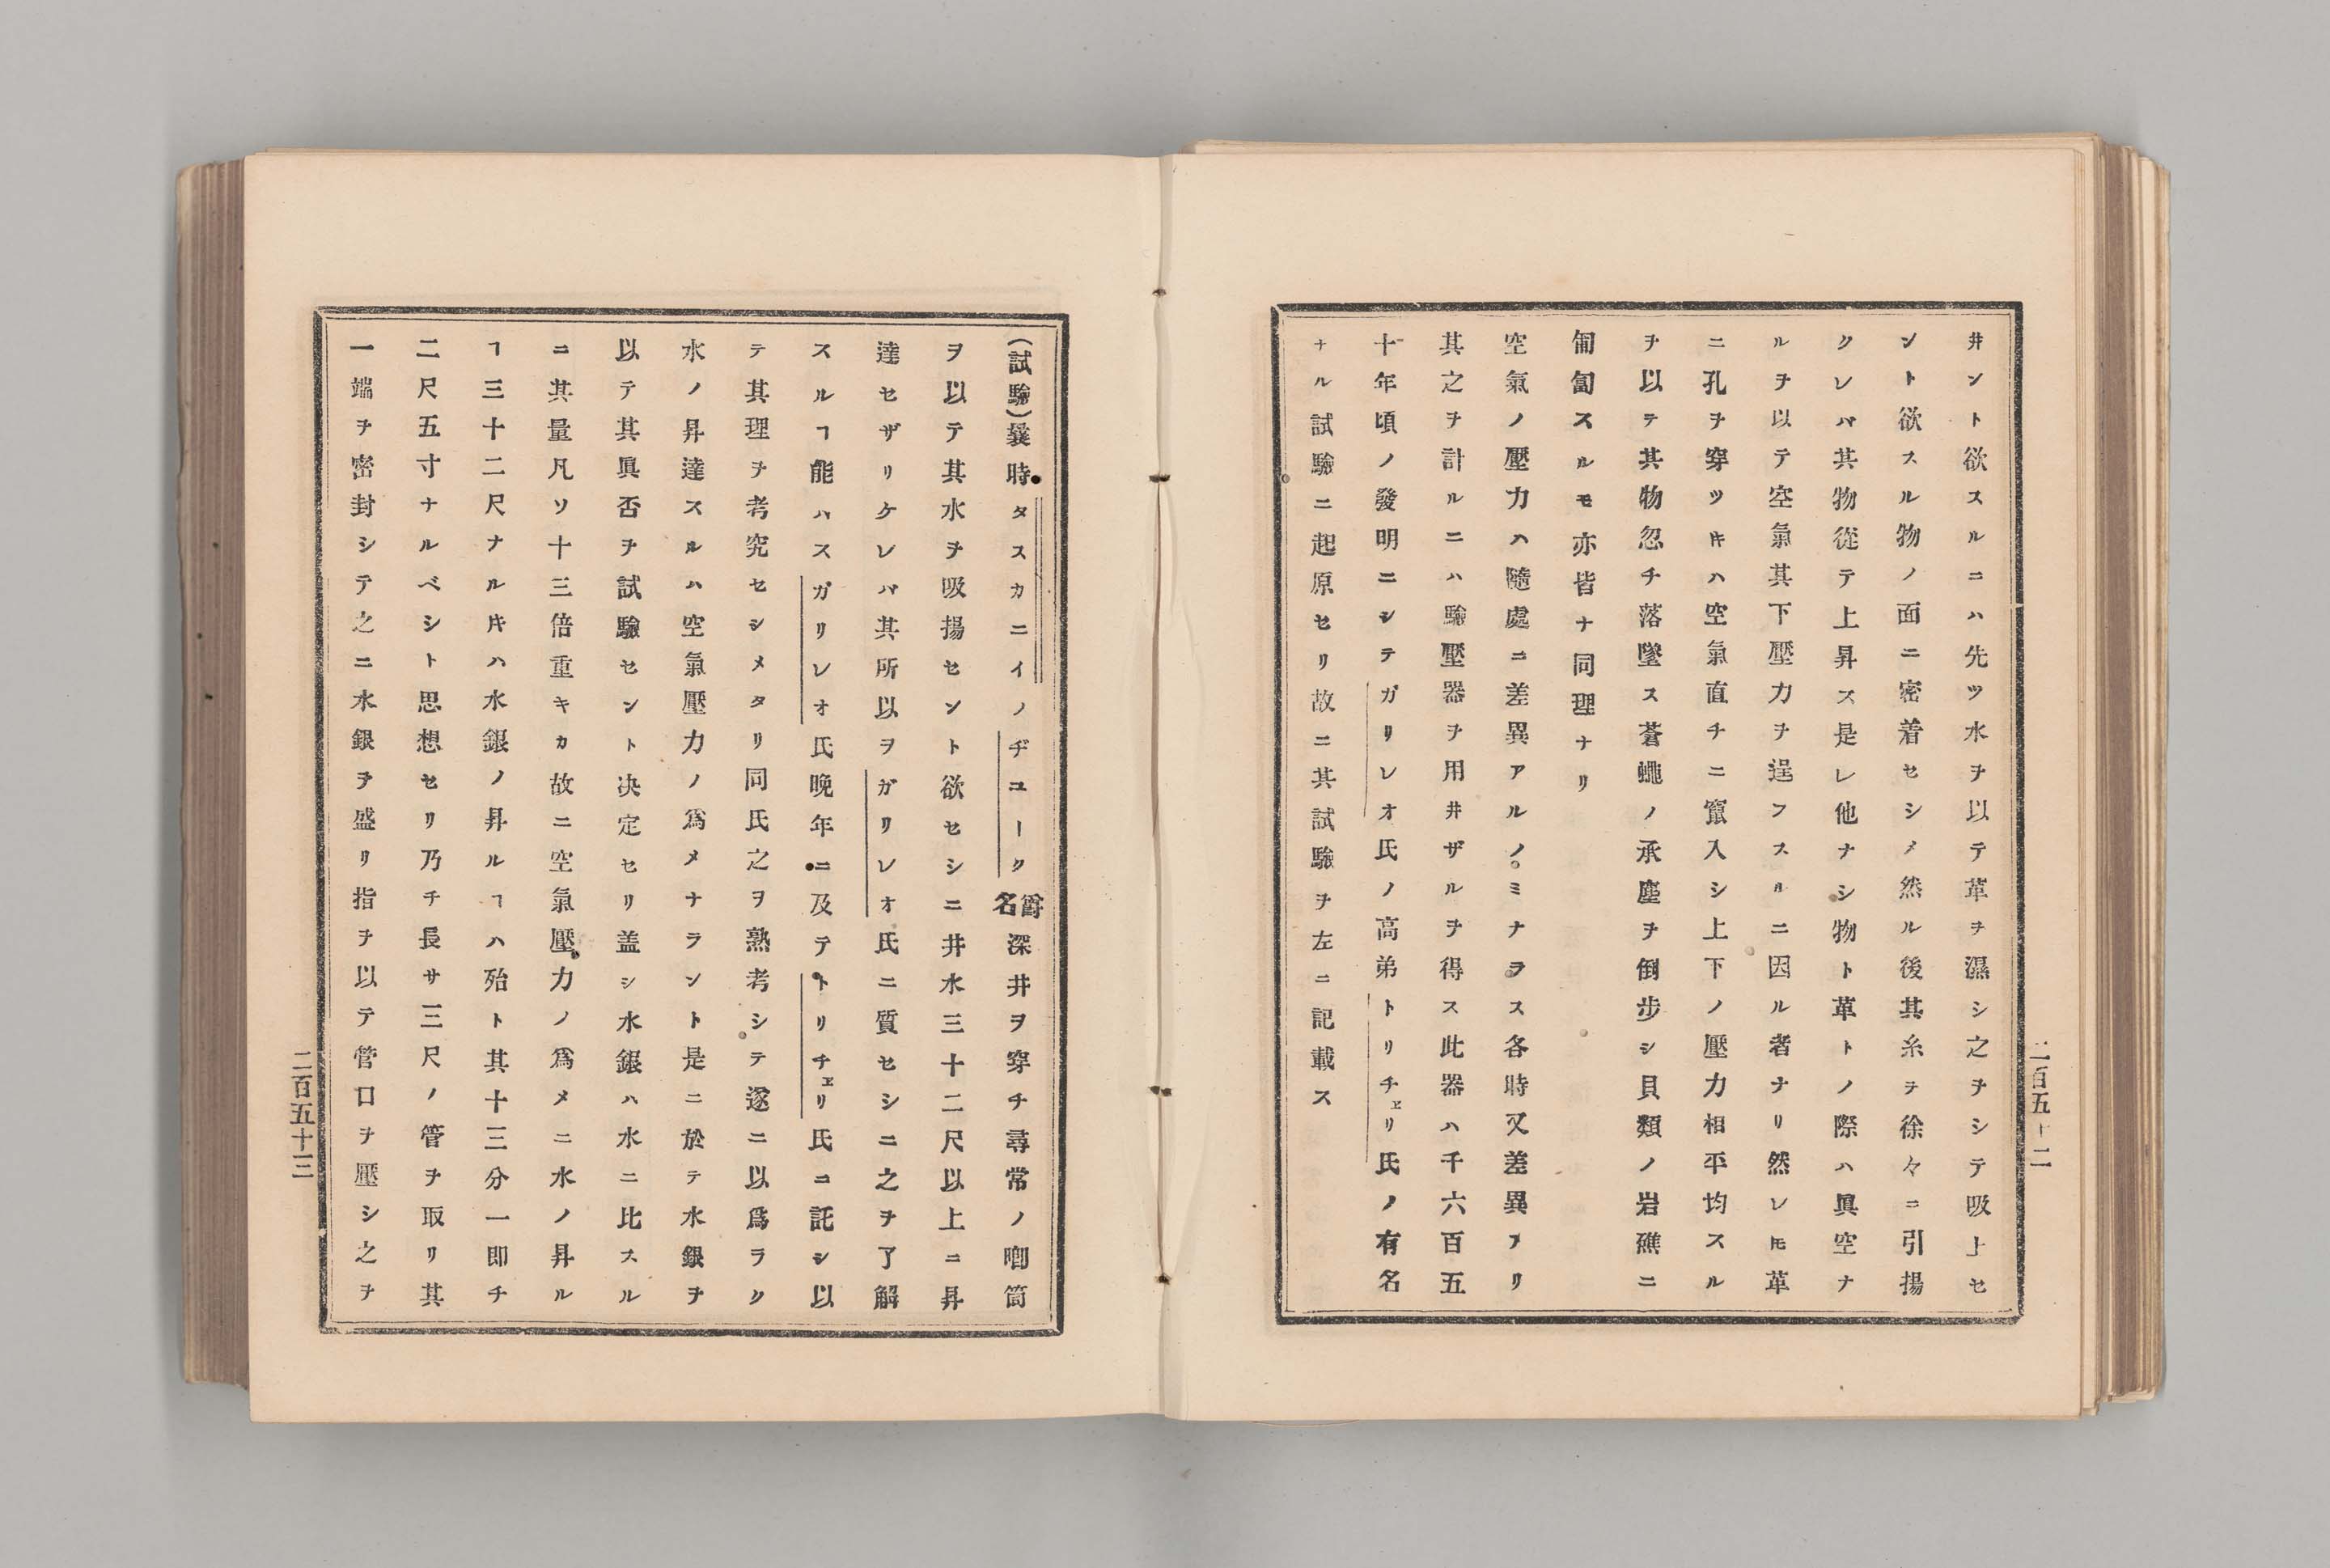 井ント欲スルニハ先ツ水ヲ以テ革ヲ濕シ之ヲシテ吸上セ
ント欲スル物ノ面ニ密着セシメ然ル後其糸ヲ徐々ニ引揚
クレバ其物從テ上昇ス是レ他ナシ物ト革トノ際ハ眞空ナ
ルヲ以テ空氣其下壓力ヲ逞フスルニ因ル者ナリ然レ𪜈革
ニ孔ヲ穿ツ𪜈ハ空氣直チニ竄入シ上下ノ壓力相平均スル
ヲ以テ其物忽チ落墜ス蒼蠅ノ承塵ヲ倒步シ貝類ノ岩礁ニ
匍匐スルモ亦皆ナ同理ナリ
空氣ノ壓力ハ隨處ニ差異アルノミナラス各時又差異アリ
其之ヲ計ルニハ驗壓器ヲ用井ザルヲ得ス此器ハ千六百五
十年頃ノ發明ニシテガリレオ氏ノ高弟トリチェリ氏ノ有名
ナル試驗ニ起原セリ故ニ其試驗ヲ左ニ記載ス
二百五十二
(試驗)曩時タスカニイノヂユーク爵名深井ヲ穿チ尋常ノ喞筒
ヲ以テ其水ヲ吸揚セント欲セシニ井水三十二尺以上ニ昇
達セザリケレバ其所以ヲガリレオ氏ニ質セシニ之ヲ了解
スルヿ能ハスガリレオ氏晩年ニ及テトリチェリ氏ニ託シ以
テ其理ヲ考究セシメタリ同氏之ヲ熟考シテ遂ニ以爲ラク
水ノ昇達スルハ空氣壓力ノ爲メナラント是ニ於テ水銀ヲ
以テ其眞否ヲ試驗セント决定セリ盖シ水銀ハ水ニ比スル
ニ其量凡ソ十三倍重キカ故ニ空氣壓力ノ爲メニ水ノ昇ル
ヿ三十二尺ナル𪜈ハ水銀ノ昇ルヿハ殆ト其十三分一即チ
二尺五寸ナルベシト思想セリ乃チ長サ三尺ノ管ヲ取リ其
一端ヲ密封シテ之ニ水銀ヲ盛リ指ヲ以テ管口ヲ壓シ之ヲ
二百五十三